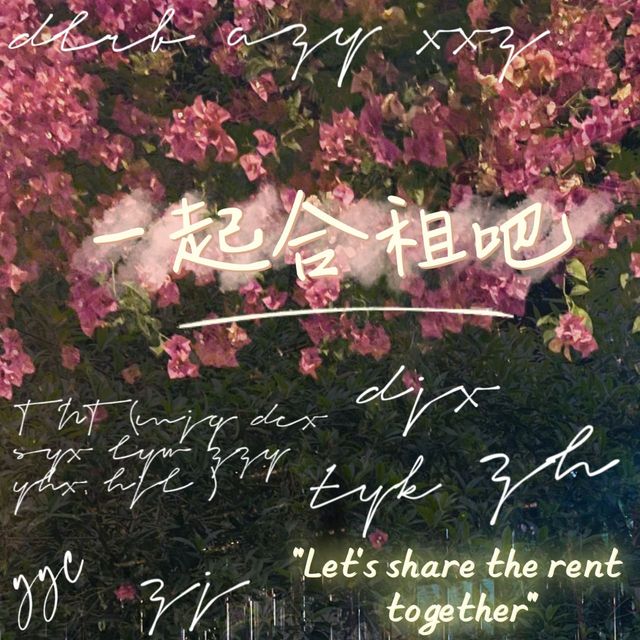 dlrb azy xxz
一起合租吧
djx
THT (mjq dcx
syx lyw zzy
yhx. hjl )
tyk zh
yyc zj
"Let's share the rent
together"